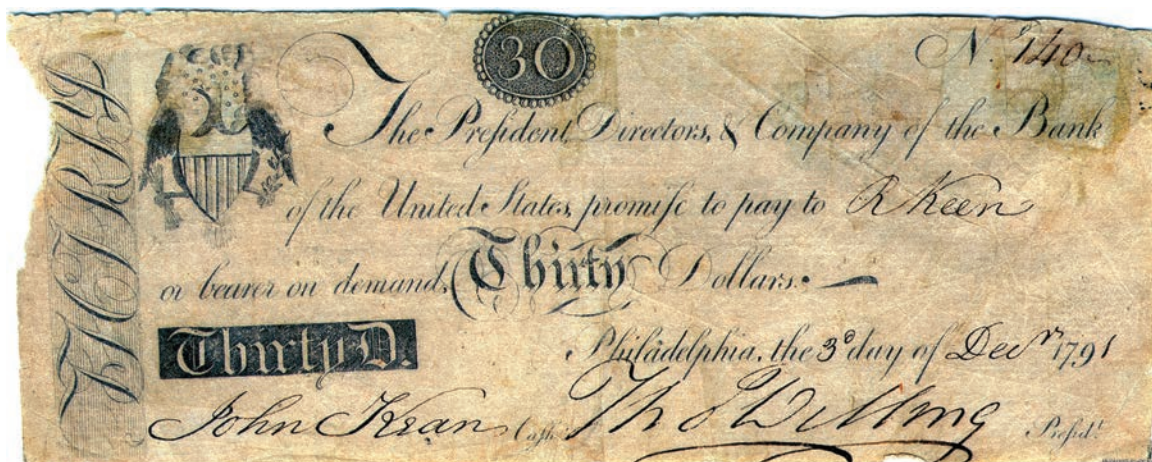 30
No. 140
The President, Directors, & Company of the Bank
of the United States, promise to pay to R Keen
or bearer on demand, Thirty Dollars.
Thirty D.
Philadelphia, the 3d day of Decr 1791
John Kean Cashr Thos Willing Presidt